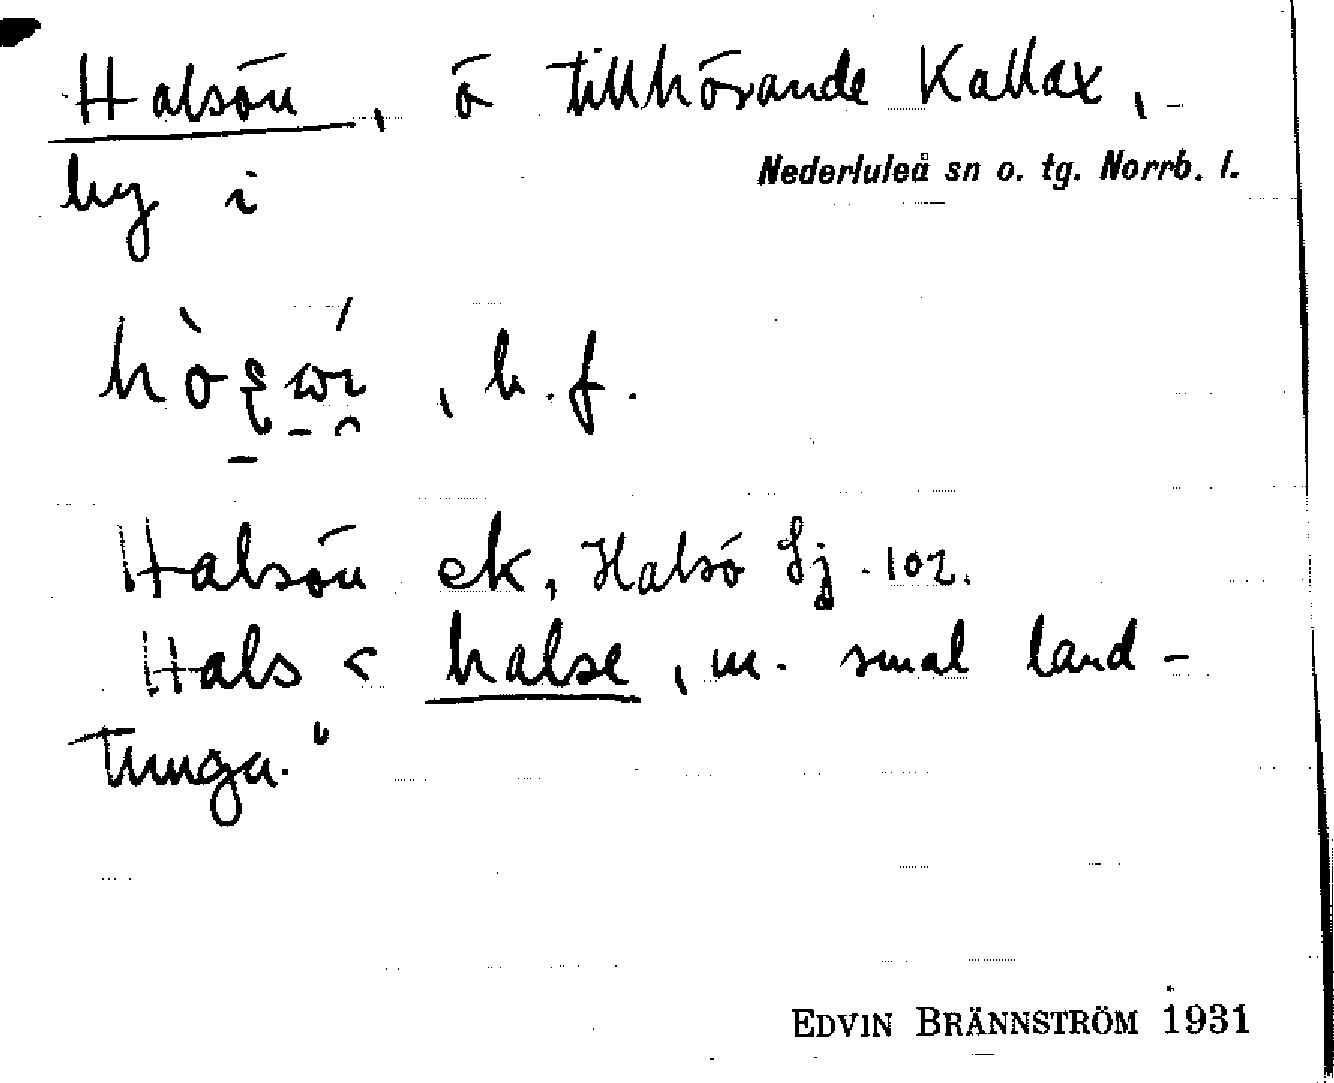 Halsön, ö tillhörande Kallax,
by i Nederluleå sn o. tg. Norrb. l.
, b. f.
Halsön ek, Halsö Sj. 102.
Hals < halse, m. smal land-
tunga."
EDVIN BRÄNNSTRÖM 1931